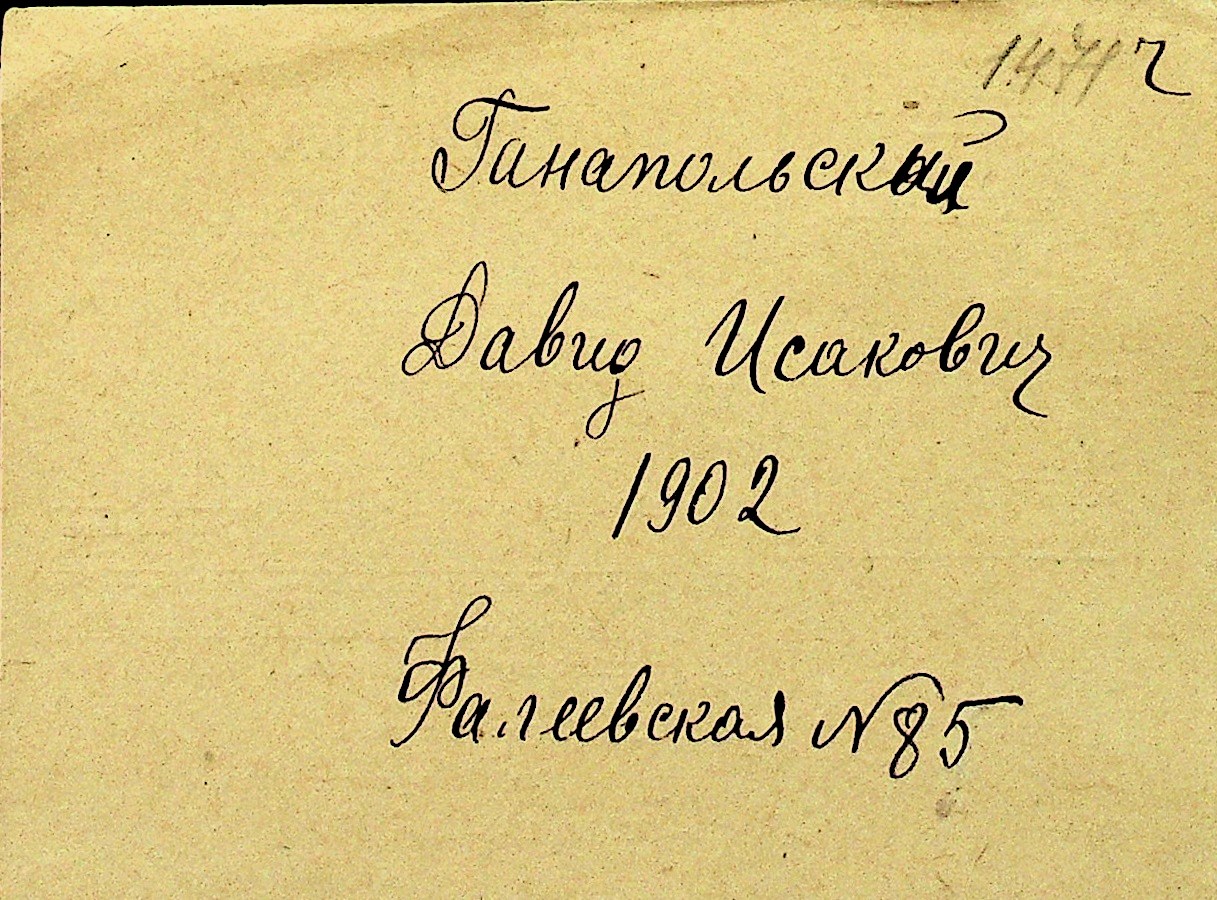 Ганапольский
Давид Исакович
1902
Фалеевская N 85